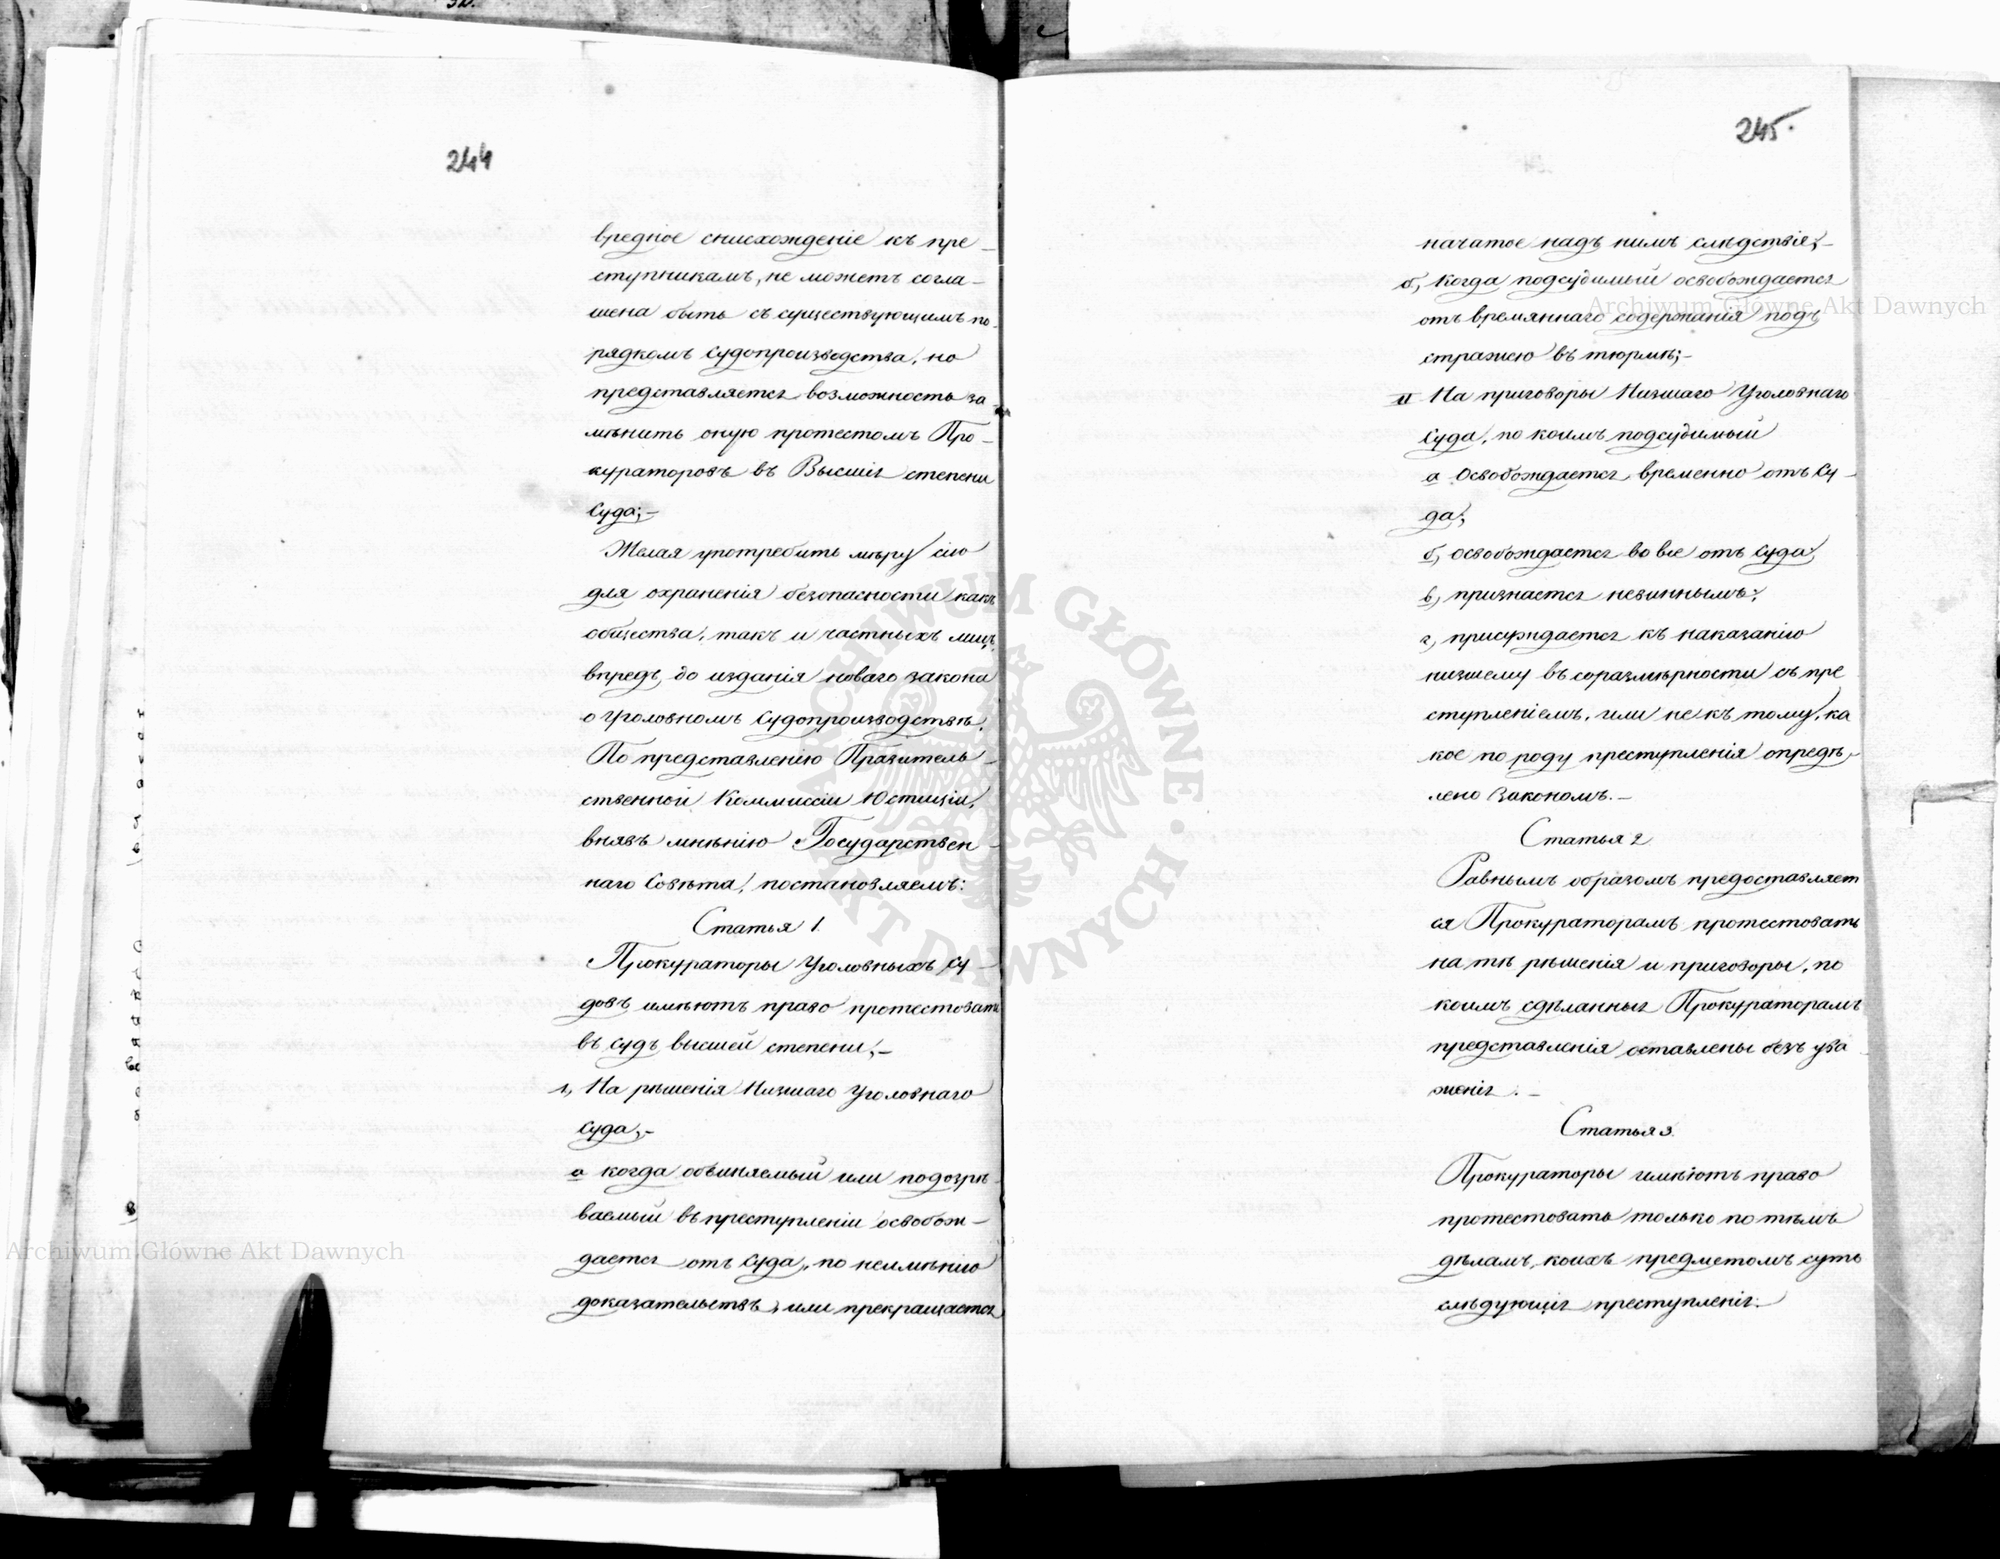 244
вредное снисхожденіе къ пре-
ступникамъ, не можетъ согла-
шена быть съ существующимъ по-
рядкомъ судопроизводства, но
представляется возможность за-
мѣнить оную протестомъ Про-
кураторовъ въ Высшія степени
Суда;-
Желая употребить мѣру сію
для охраненія безопасности какъ
общества, такъ и частныхъ лицъ,
впредь до изданія новаго закона
о уголовномъ судопроизводствѣ,
По представленію Правитель-
ственной Коммиссіи Юстиціи,
внявъ мнѣнію Государствен-
наго Совѣта, постановляемъ:
Статья 1.
Прокураторы Уголовныхъ Су-
довъ имѣютъ право протестовать
въ судъ высшей степени;-
1, На рѣшенія Низшаго Уголовнаго
Суда,-
а когда обвиняемый или подозрѣ-
ваемый въ преступленіи освобож-
дается отъ Суда, по неимѣнію
доказательствъ, или прекращается
245.
начатое надъ нимъ слѣдствіе;-
б, когда подсудимый освобождается
отъ времяннаго содержанія подъ
стражею въ тюрмѣ;-
II На приговоры Низшаго Уголовнаго
Суда, по коимъ подсудимый
а Освобождается временно отъ Су-
да;
б, освобождается во все отъ Суда,
в, признается невиннымъ;
г, присуждается къ наказанію
низшему въ соразмѣрности съ пре
ступленіемъ, или не къ тому, ка
кое по роду преступленія опредѣ-
лено Закономъ.-
Статья 2
Равнымъ образомъ предоставляет
ся Прокураторамъ протестовать
на тѣ рѣшенія и приговоры, по
коимъ сдѣланныя Прокураторамъ
представленія оставлены безъ ува
женія.-
Статья 3.
Прокураторы имѣютъ право
протестовать только по тѣмъ
дѣламъ, коихъ предметомъ суть
слѣдующія преступленія:
Archiwum Główne Akt Dawnych
Archiwum Główne Akt Dawnych
ARCHIWUM GŁÓWNE AKT DAWNYCH